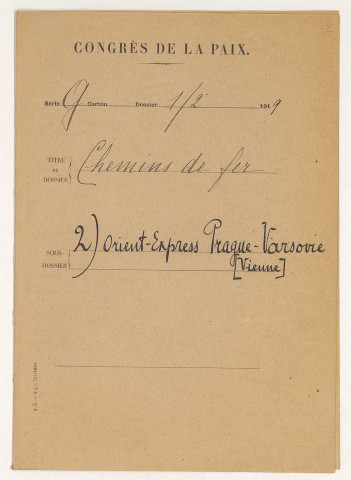 CONGRÈS DE LA PAIX.
Série G Carton Dossier 1/2 1919
TITRE DU DOSSIER Chemins de fer
SOUS-DOSSIER 2) Orient-Express Prague-Varsovie
[Vienne]